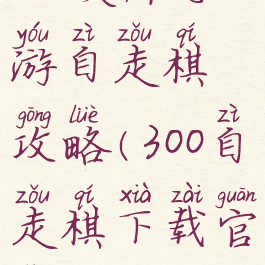 yóu zì zǒu qí
游自走棋
gōng lüè zì
攻略(300自
zǒu qí xià zài guān
走棋下载官